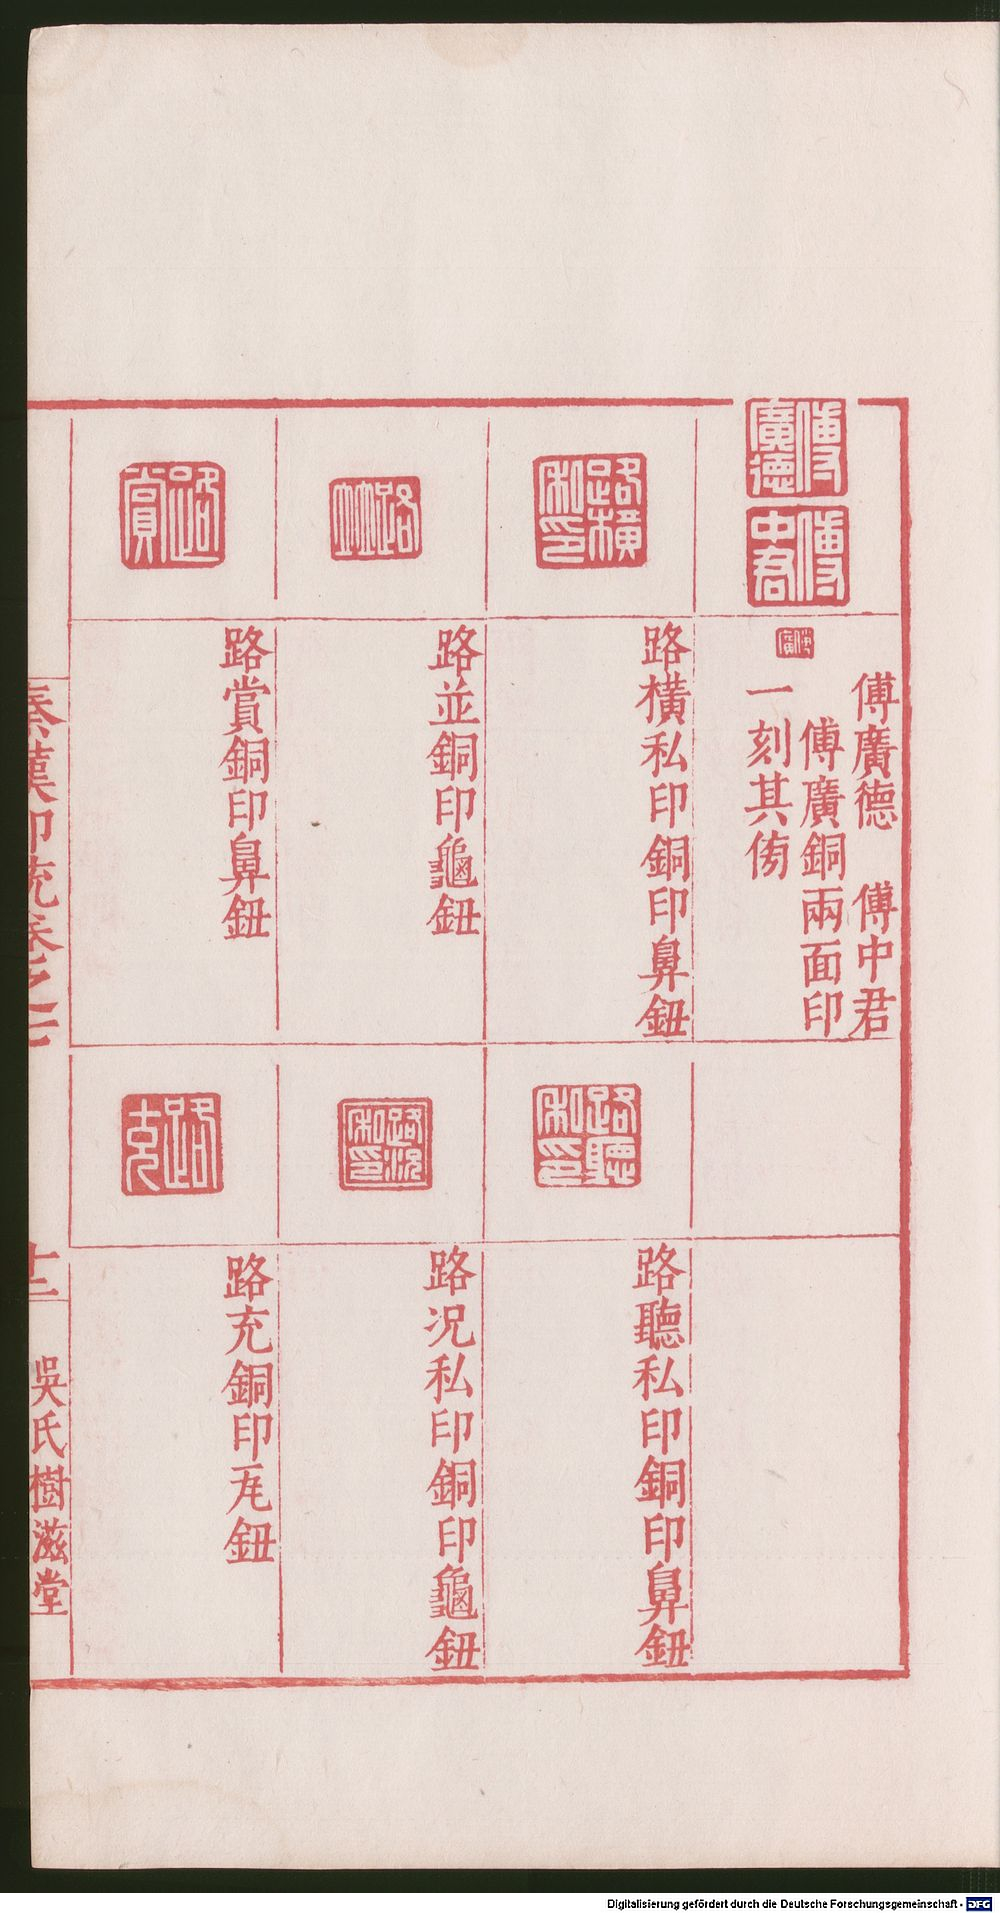 傅廣德
傅中君
傅廣
傅廣德 傅中君
傅廣銅兩面印
一刻其傍
路橫私印
路橫私印銅印鼻鈕
路並
路並銅印龜鈕
路賞
路賞銅印鼻鈕
路聽私印
路聽私印銅印鼻鈕
路況私印
路況私印銅印龜鈕
路充
路充銅印瓦鈕
秦漢印統卷之七
十二
吳氏樹滋堂
Digitalisierung gefördert durch die Deutsche Forschungsgemeinschaft - DFG